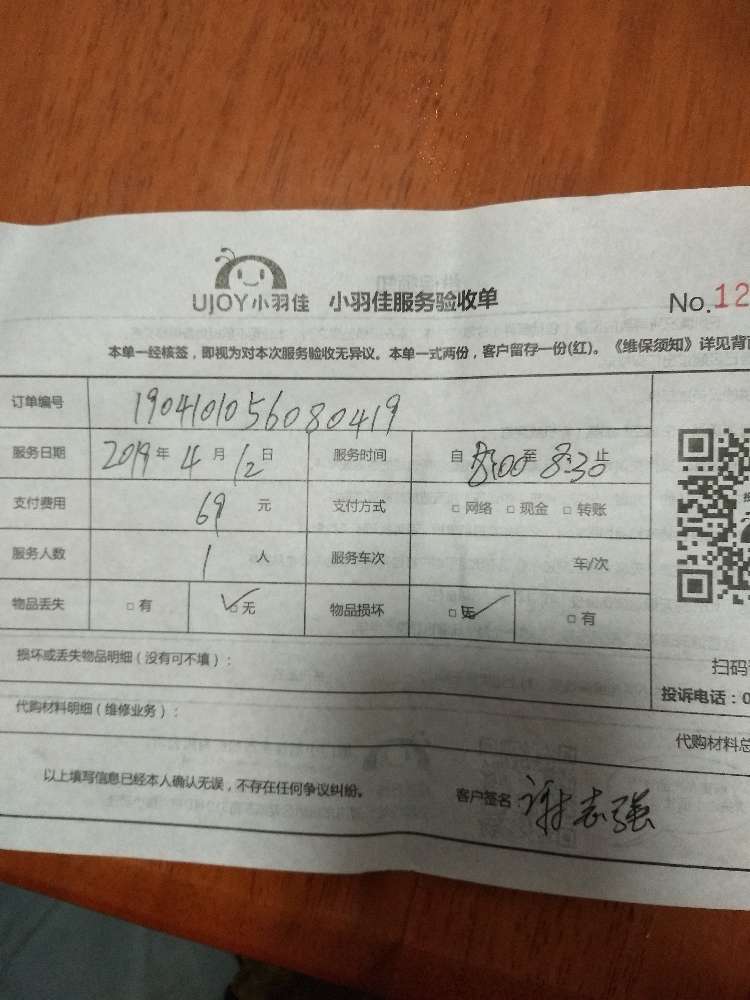 UJOY小羽佳 小羽佳服务验收单 No.12
本单一经核签，即视为对本次服务验收无异议。本单一式两份，客户留存一份(红)。《维保须知》详见背面
订单编号 1904101056080419
服务日期 2019年4月12日 服务时间 自8:00至8:30止
支付费用 69元 支付方式 □网络 □现金 □转账
服务人数 1人 服务车次 车/次
物品丢失 □有 ☑无 物品损坏 ☑无 □有
损坏或丢失物品明细（没有可不填）：
扫码
代购材料明细（维修业务）：
投诉电话：0
代购材料总
以上填写信息已经本人确认无误，不存在任何争议纠纷。 客户签名 谢志强